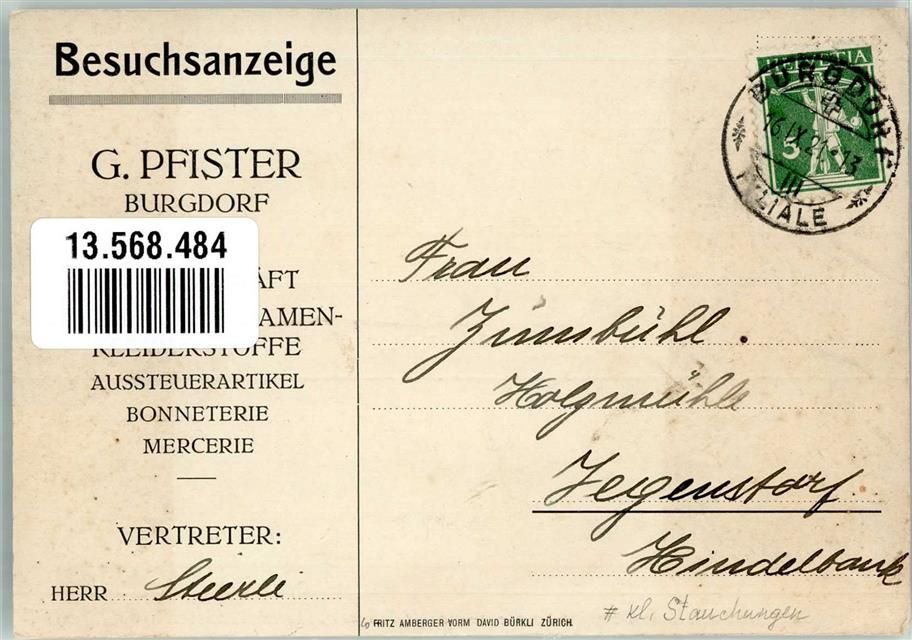 Besuchsanzeige
G. PFISTER
BURGDORF
13.568.484
ÄFT
AMEN-
KLEIDERSTOFFE
AUSSTEUERARTIKEL
BONNETERIE
MERCERIE
VERTRETER:
HERR Steerli
HELVETIA
BURGDORF
16.IX.21-13
III
FILIALE
Frau
Zumbühl.
Holzmühle
Jegenstorf
Hindelbank
# kl. Stauchungen
FRITZ AMBERGER VORM DAVID BÜRKLI ZÜRICH.